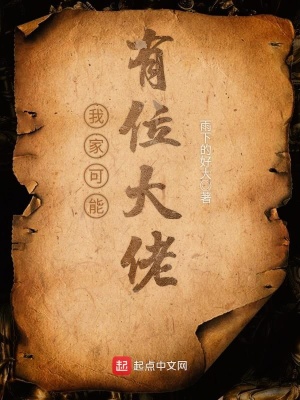 我家可能
有位大佬
雨下的好大 著
起 起点中文网